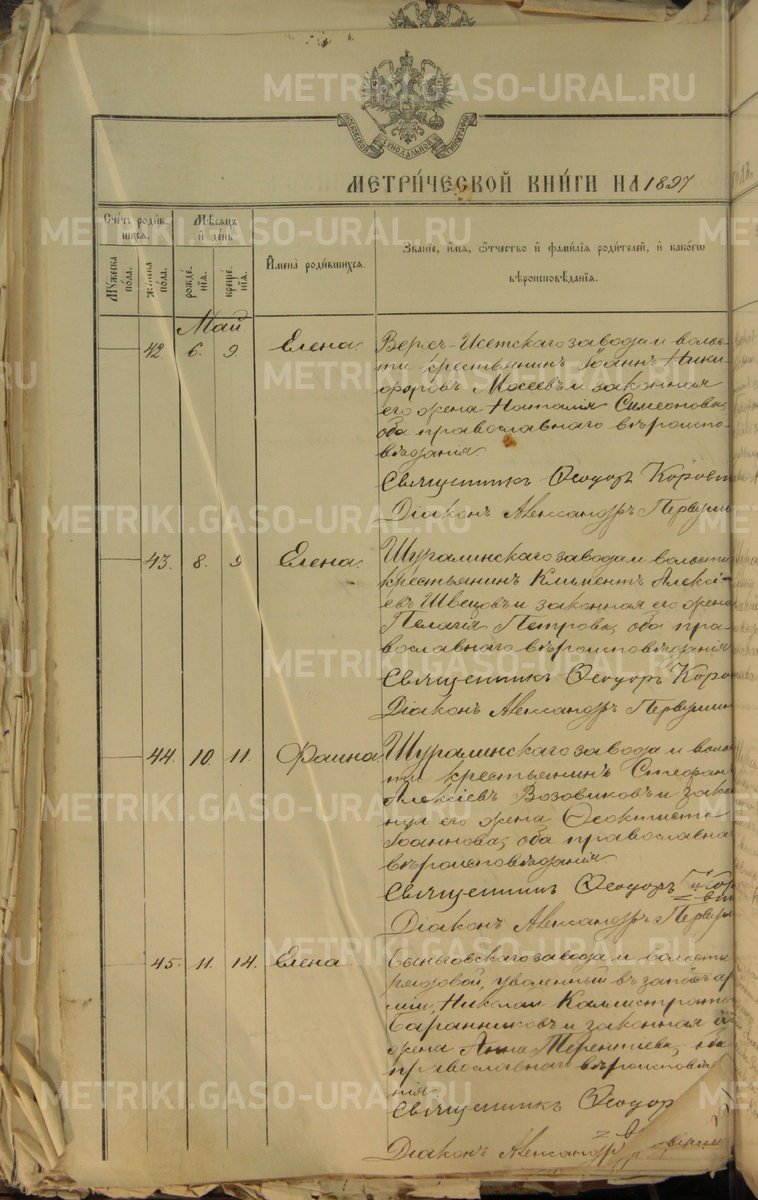 METRIKI.GASO-URAL.RU
МОСКОВСКОЙ СѴНОДАЛЬНОЙ ТИПОГРАФІИ
МЕТРИ́ЧЕСКОЙ КНИ́ГИ НА 1897
Сче́тъ роди́в-
шихся.
Мѣ́сяцъ
и҆ де́нь
И҆мена̀ роди́вшихся.
Зва́нїе, и҆́мя, ѻ҆́тчество и҆ фами́лїѧ роди́телей, и҆ како́гѡ
вѣроисповѣ́данїя.
Му́жеска
по́ла.
Же́нска
по́ла.
рожде́-
нїя.
креще́-
нїя.
Май
42 6. 9. Елена. Верхъ-Исетскаго завода и волос-
ти крестьянинъ Іоаннъ Ники-
форовъ Мосеевъ и законная
его жена Наталія Симеонова,
оба православнаго вѣроиспо-
вѣданія.
Священникъ Ѳеодоръ Коров
Діаконъ Александръ Первуши
43. 8. 9 Елена. Шуралинскаго завода и волости
крестьянинъ Климентъ Алексі-
евъ Швецовъ и законная его жена
Пелагія Петрова, оба пра-
вославнаго вѣроисповѣданія
Священникъ Ѳеодоръ Коро
Діаконъ Александръ Первушин
44. 10. 11. Фаина Шуралинскаго завода и воло
ти крестьянинъ Стефан
Алексіевъ Возовиковъ и зако
ная его жена Ѳеоктиста
Іоаннова, оба православна
вѣроисповѣданія
Священникъ Ѳеодоръ
Діаконъ Александръ Первуш
45. 11. 14. Елена Быньговскаго завода и волости
рядовой, уволенный въ запасъ ар
міи, Николай Каллистрато
Баранниковъ и законная е
жена Анна Терентіева, оба
православнаго вѣроисповѣда
нія.
Священникъ Ѳеодор
Діаконъ Александръ